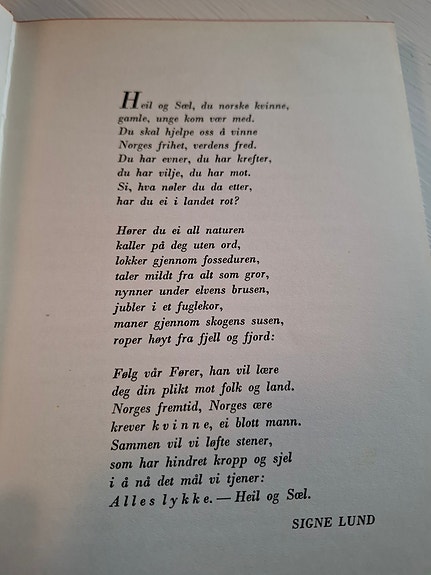 Heil og Sæl, du norske kvinne,
gamle, unge kom vær med.
Du skal hjelpe oss å vinne
Norges frihet, verdens fred.
Du har evner, du har krefter,
du har vilje, du har mot.
Si, hva nøler du da etter,
har du ei i landet rot?
Hører du ei all naturen
kaller på deg uten ord,
lokker gjennom fosseduren,
taler mildt fra alt som gror,
nynner under elvens brusen,
jubler i et fuglekor,
maner gjennom skogens susen,
roper høyt fra fjell og fjord:
Følg vår Fører, han vil lære
deg din plikt mot folk og land.
Norges fremtid, Norges ære
krever kvinne, ei blott mann.
Sammen vil vi løfte stener,
som har hindret kropp og sjel
i å nå det mål vi tjener:
Alles lykke. — Heil og Sæl.
SIGNE LUND